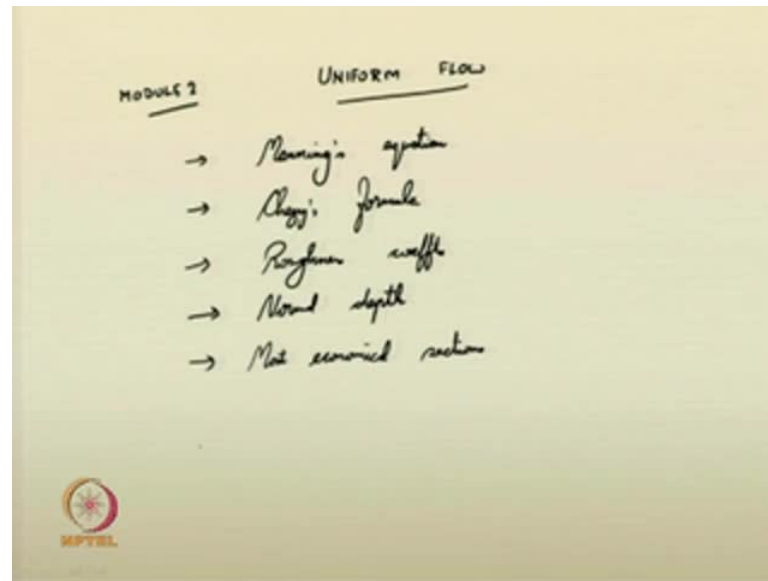 MODULE 2 UNIFORM FLOW
→ Manning's equation
→ Chezy's formula
→ Roughness coeffts
→ Normal depth
→ Most economical sections
NPTEL